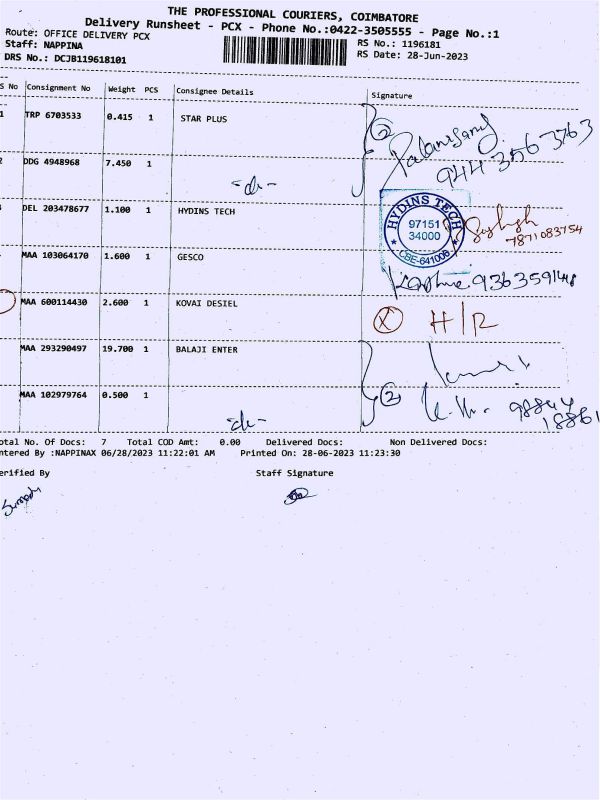 THE PROFESSIONAL COURIERS, COIMBATORE
Delivery Runsheet - PCX - Phone No.:0422-3505555 - Page No.:1
Route: OFFICE DELIVERY PCX
Staff: NAPPINA
RS No.: 1196181
DRS No.: DCJB119618101
RS Date: 28-Jun-2023
S No Consignment No Weight PCS Consignee Details Signature
1 TRP 6703533 0.415 1 STAR PLUS
2
944 3563763
2 DDG 4948968 7.450 1
-do-
DEL 203478677 1.100 1 HYDINS TECH
HYDINS TECH
97151
34000
CBE-641006
7871083754
MAA 103064170 1.600 1 GESCO
9363591448
MAA 600114430 2.600 1 KOVAI DESIEL
X H/R
MAA 293290497 19.700 1 BALAJI ENTER
2
MAA 102979764 0.500 1
-do-
98844
18861
otal No. Of Docs: 7 Total COD Amt: 0.00 Delivered Docs: Non Delivered Docs:
ntered By :NAPPINAX 06/28/2023 11:22:01 AM Printed On: 28-06-2023 11:23:30
erified By Staff Signature